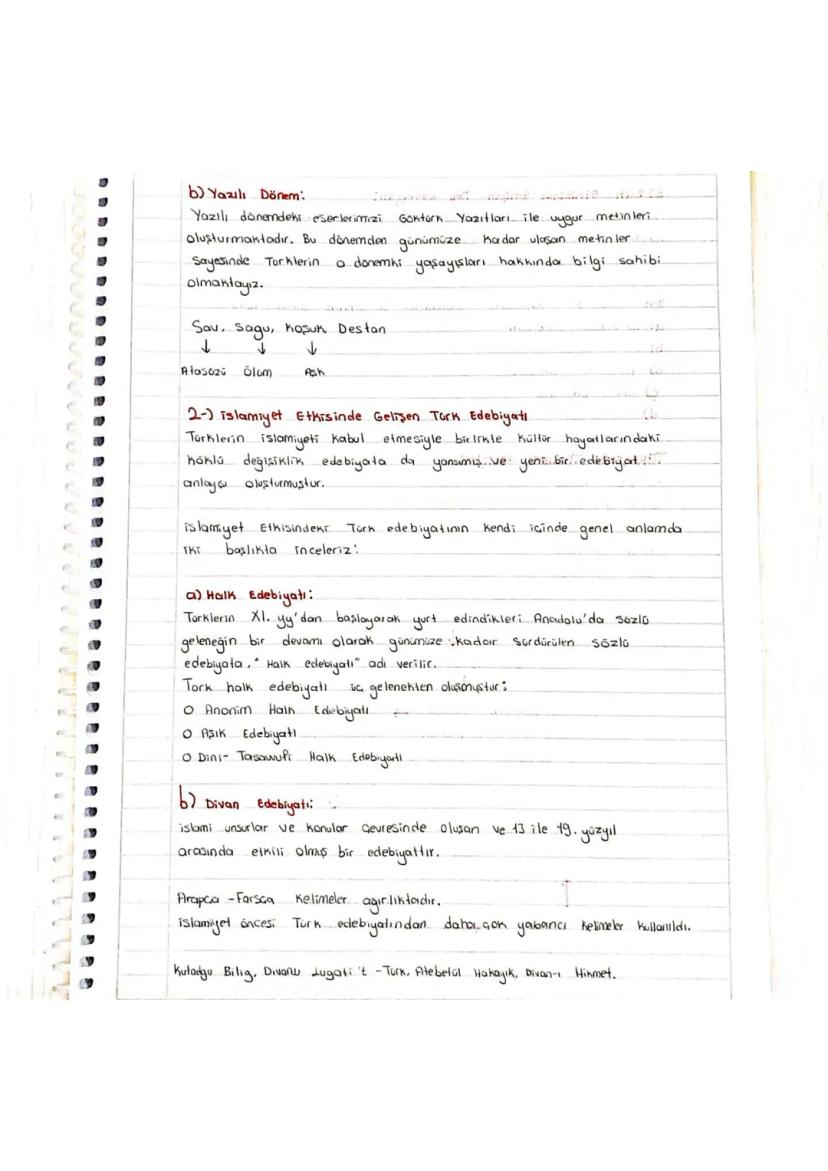 b) Yazılı Dönem:
Yazılı dönemdeki eserlerimizi Göktürk Yazıtları ile uygur metinleri
oluşturmaktadır. Bu dönemden günümüze kadar ulaşan metinler
sayesinde Türklerin o dönemki yaşayışları hakkında bilgi sahibi
olmaktayız.
Sav, Sagu, Koşuk, Destan
↓ ↓ ↓
Atasözü Ölüm Aşk
2-) İslamiyet Etkisinde Gelişen Türk Edebiyatı
Türklerin islamiyeti kabul etmesiyle birlikte kültür hayatlarındaki
köklü değişiklik edebiyata da yansımış ve yeni bir edebiyat
anlayışı oluşturmuştur.
islamiyet Etkisindeki Türk edebiyatının kendi içinde genel anlamda
iki başlıkta inceleriz:
a) Halk Edebiyatı:
Türklerin XI. yy'dan başlayarak yurt edindikleri Anadolu'da sözlü
geleneğin bir devamı olarak günümüze kadar sürdürülen sözlü
edebiyata, "Halk edebiyatı" adı verilir.
Türk halk edebiyatı üç gelenekten oluşmuştur:
O Anonim Halk Edebiyatı
O Aşık Edebiyatı
O Dini-Tasavvufi Halk Edebiyatı
b) Divan Edebiyatı:
islami unsurlar ve konular çevresinde oluşan ve 13 ile 19. yüzyıl
arasında etkili olmuş bir edebiyattır.
Arapça-Farsça kelimeler ağırlıktadır.
islamiyet öncesi Türk edebiyatından daha çok yabancı kelimeler kullanıldı.
Kutadgu Bilig, Divanü Lugati't-Türk, Atebetül Hakayık, Divan-ı Hikmet.